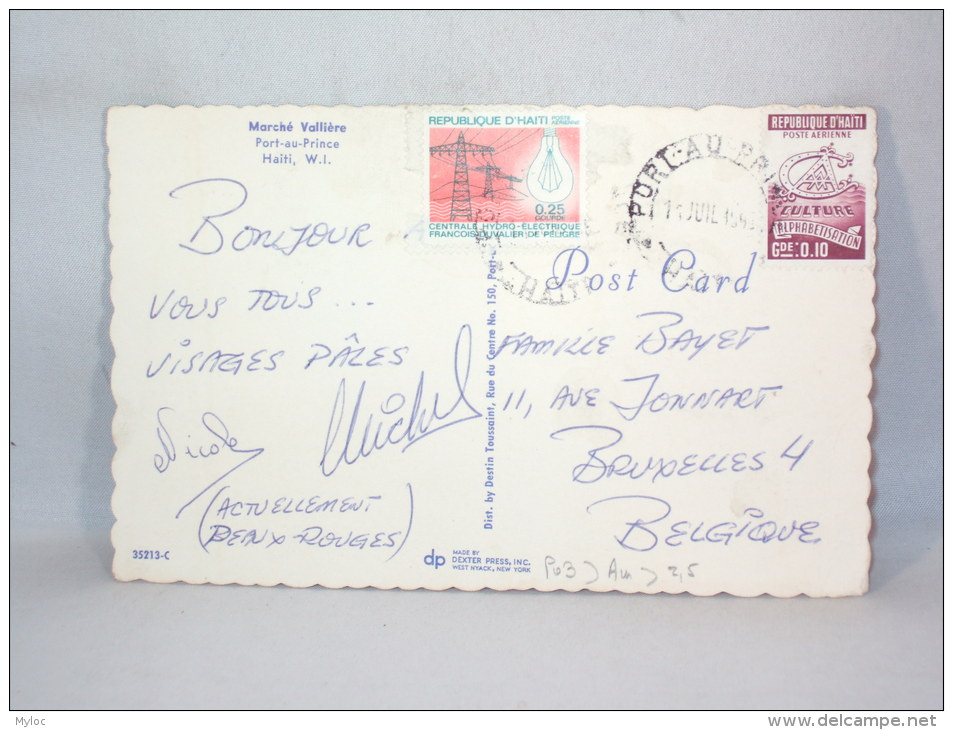 Marché Vallière
Port-au-Prince
Haiti, W.I.
REPUBLIQUE D'HAITI POSTE AERIENNE
0.25
GOURDE
CENTRALE HYDRO-ÉLECTRIQUE
FRANCOIS DUVALIER DE PELIGRE
PORT-AU-PRIN
JUIL
HAITI
REPUBLIQUE D'HAITI
POSTE AÉRIENNE
CULTURE
ALPHABETISATION
GDE:0.10
Post Card
BONJOUR À
VOUS TOUS...
VISAGES PÂLES
Nicole Michel
(ACTUELLEMENT
PEAUX-ROUGES)
Dist. by Destin Toussaint, Rue du Centre No. 150, Port-
FAMILLE BAYET
11, AVE JONNART
BRUXELLES 4
BELGIQUE
35213-C
dp MADE BY
DEXTER PRESS, INC.
WEST NYACK, NEW YORK
2,5
Myloc
www.delcampe.net